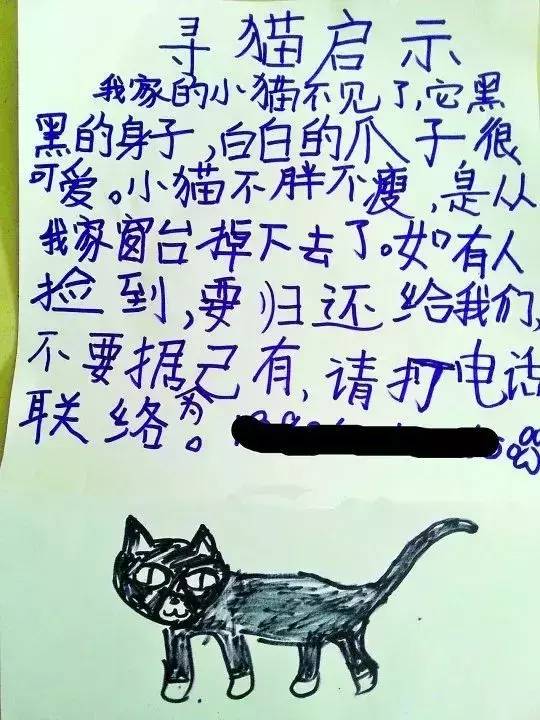 寻猫启示
我家的小猫不见了,它黑
黑的身子,白白的爪子很
可爱。小猫不胖不瘦,是从
我家窗台掉下去了。如有人
捡到,要归还给我们,
不要据为己有,请打电话
联络。